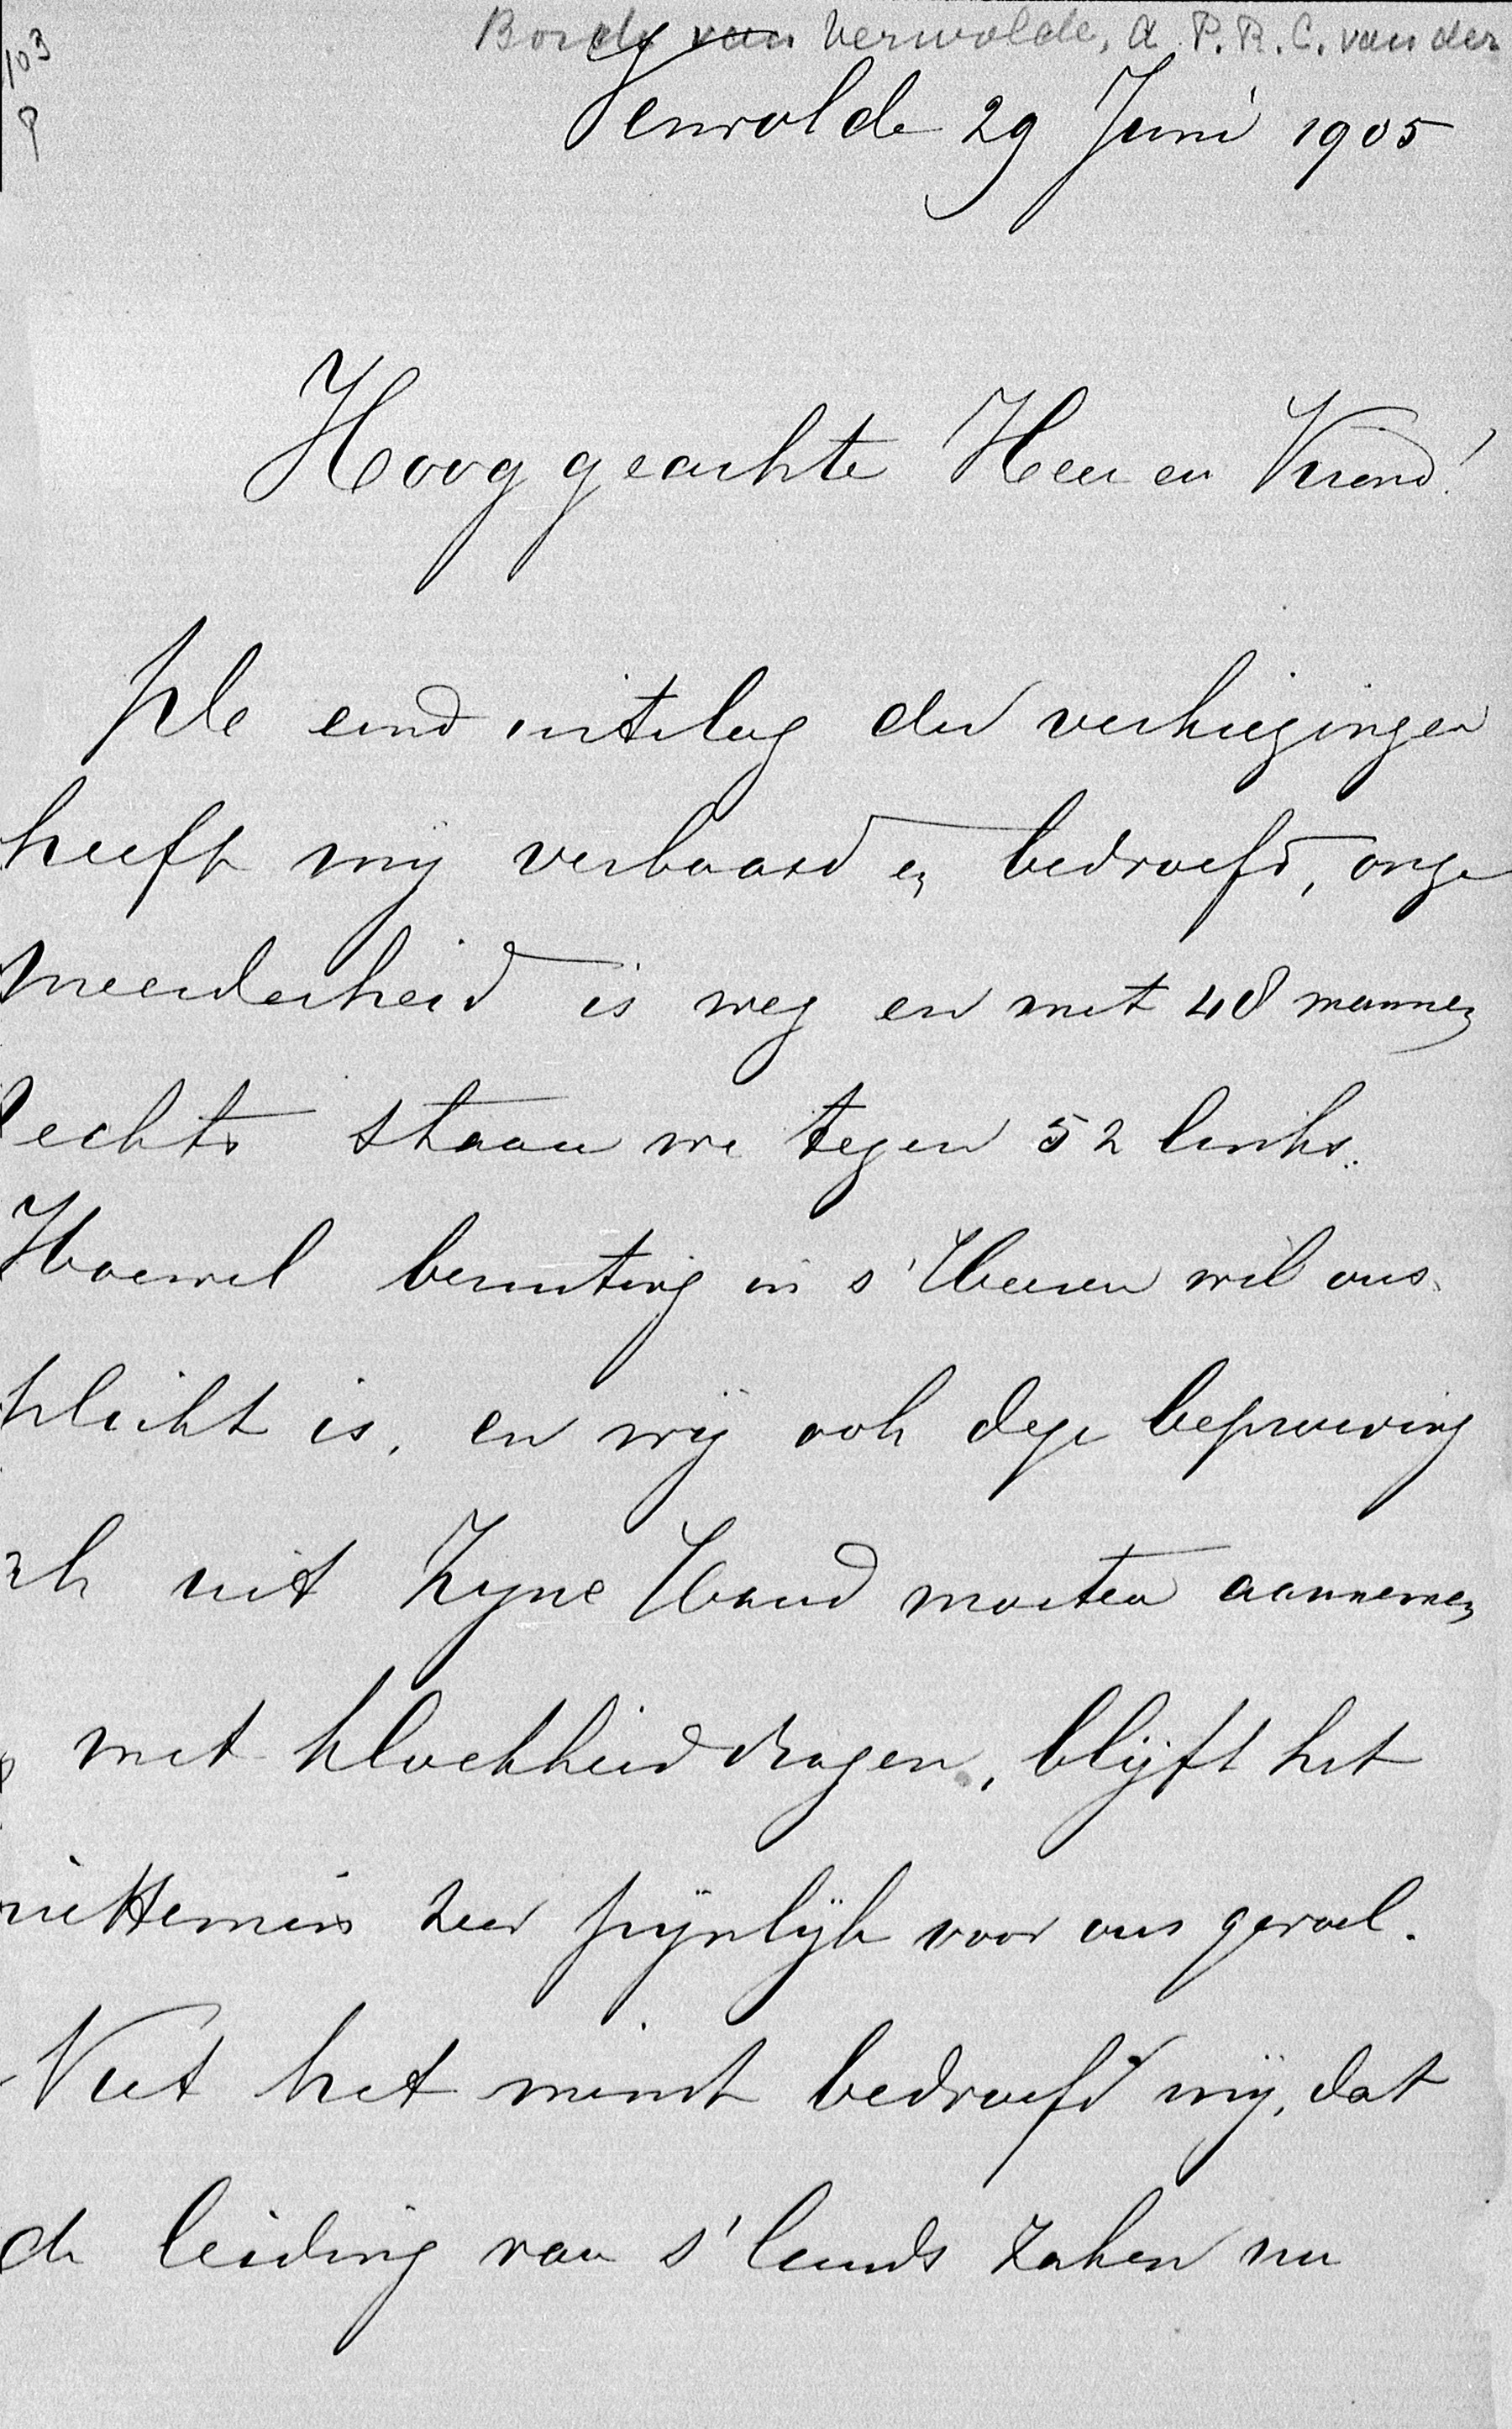 Borch van Verwolde, A. P. R. C. van der
103
Verwolde 29 Juni 1905
Hooggeachte Heer en Vriend!
De eind uitslag der verkiezingen
heeft mij verbaasd en bedroefd, onze
meerderheid is weg en met 48 mannen
rechts staan we tegen 52 links.
Hoewel berusting in s' Heeren wil ons
plicht is, en wij ook deze beproeving
uit Zijne Hand moeten aannemen
met kloekheid dragen, blijft het
niettemin zeer pijnlijk voor ons gevoel.
Niet het minst bedroeft mij, dat
de leiding van s' lands zaken nu